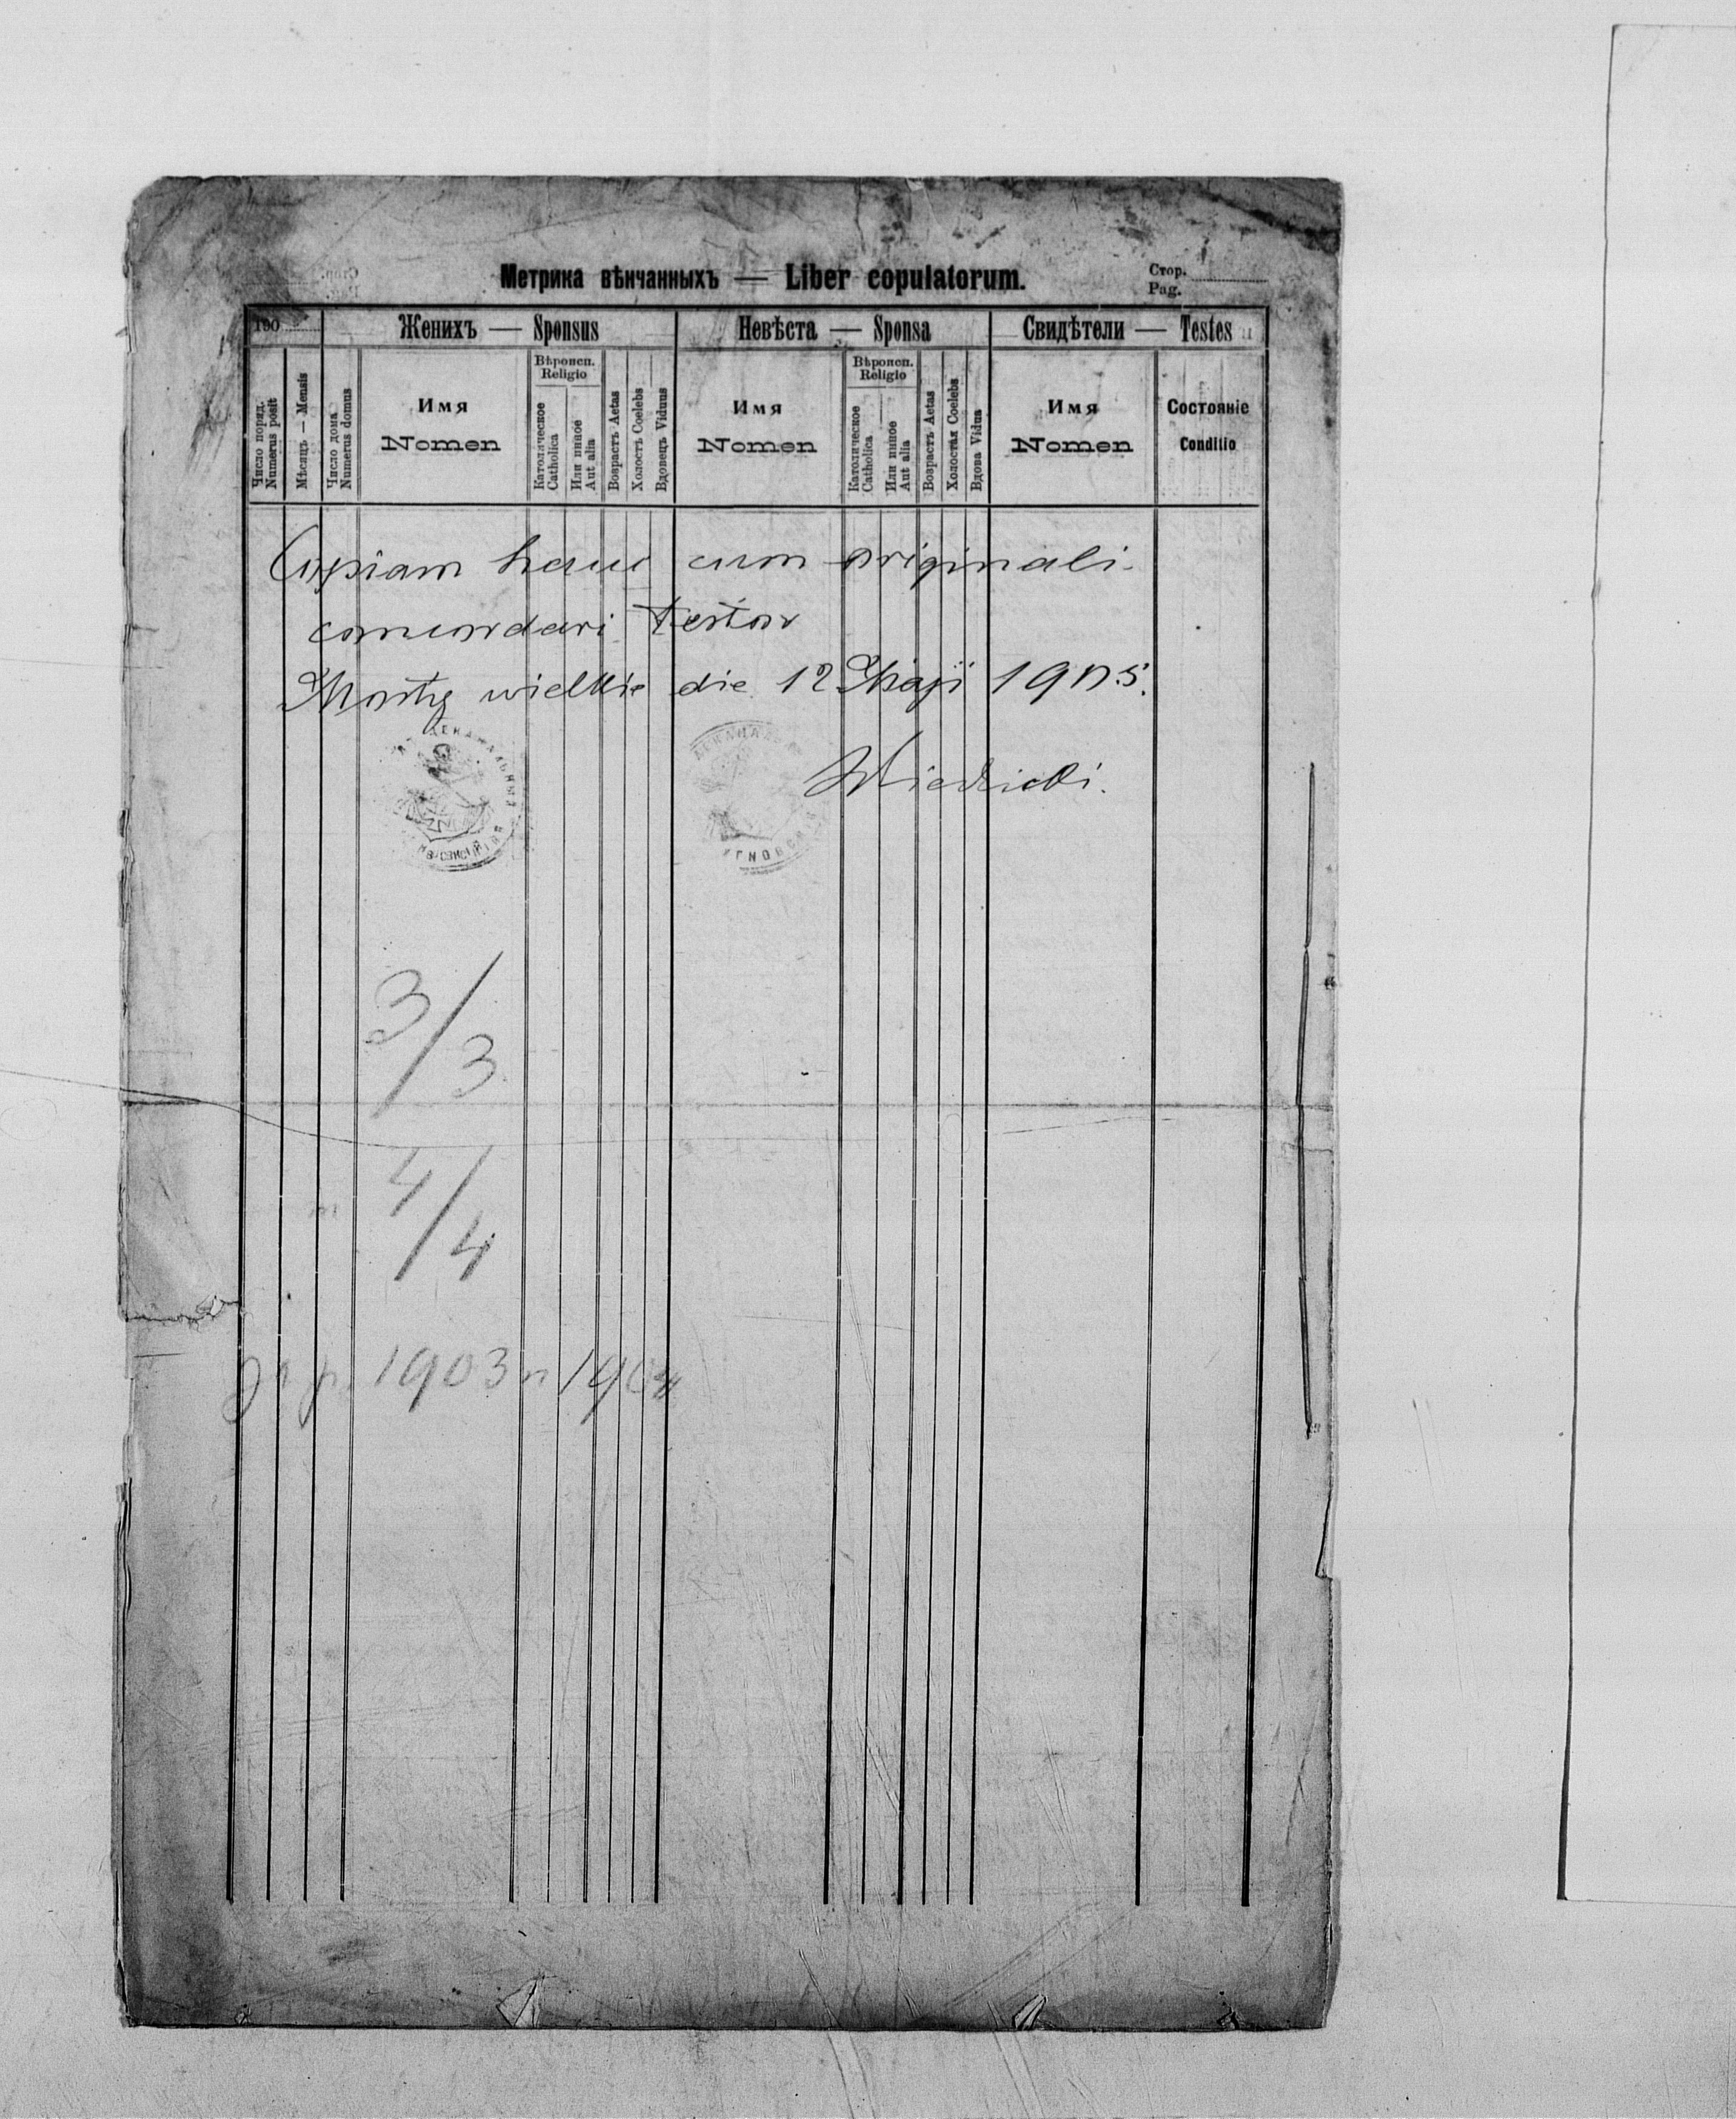 Метрика вѣнчанныхъ — Liber copulatorum.
Стор.
Pag.
190
Женихъ — Sponsus
Невѣста — Sponsa
Свидѣтели — Testes
Число поряд.
Numerus posit
Мѣсяцъ — Mensis
Число дома
Numerus domus
Имя
Nomen
Вѣроисп.
Religio
Католическое
Catholica
Или инное
Aut alia
Возрастъ Aetas
Холостъ Coelebs
Вдовецъ Viduus
Имя
Nomen
Вѣроисп.
Religio
Католическое
Catholica
Или инное
Aut alia
Возрастъ Aetas
Холостая Coelebs
Вдова Vidua
Имя
Nomen
Состояніе
Conditio
Copiam hanc cum originali
concordari testor
Mosty wielkie die 12 Maji 1905.
3/3
4/4
1903 и 1904